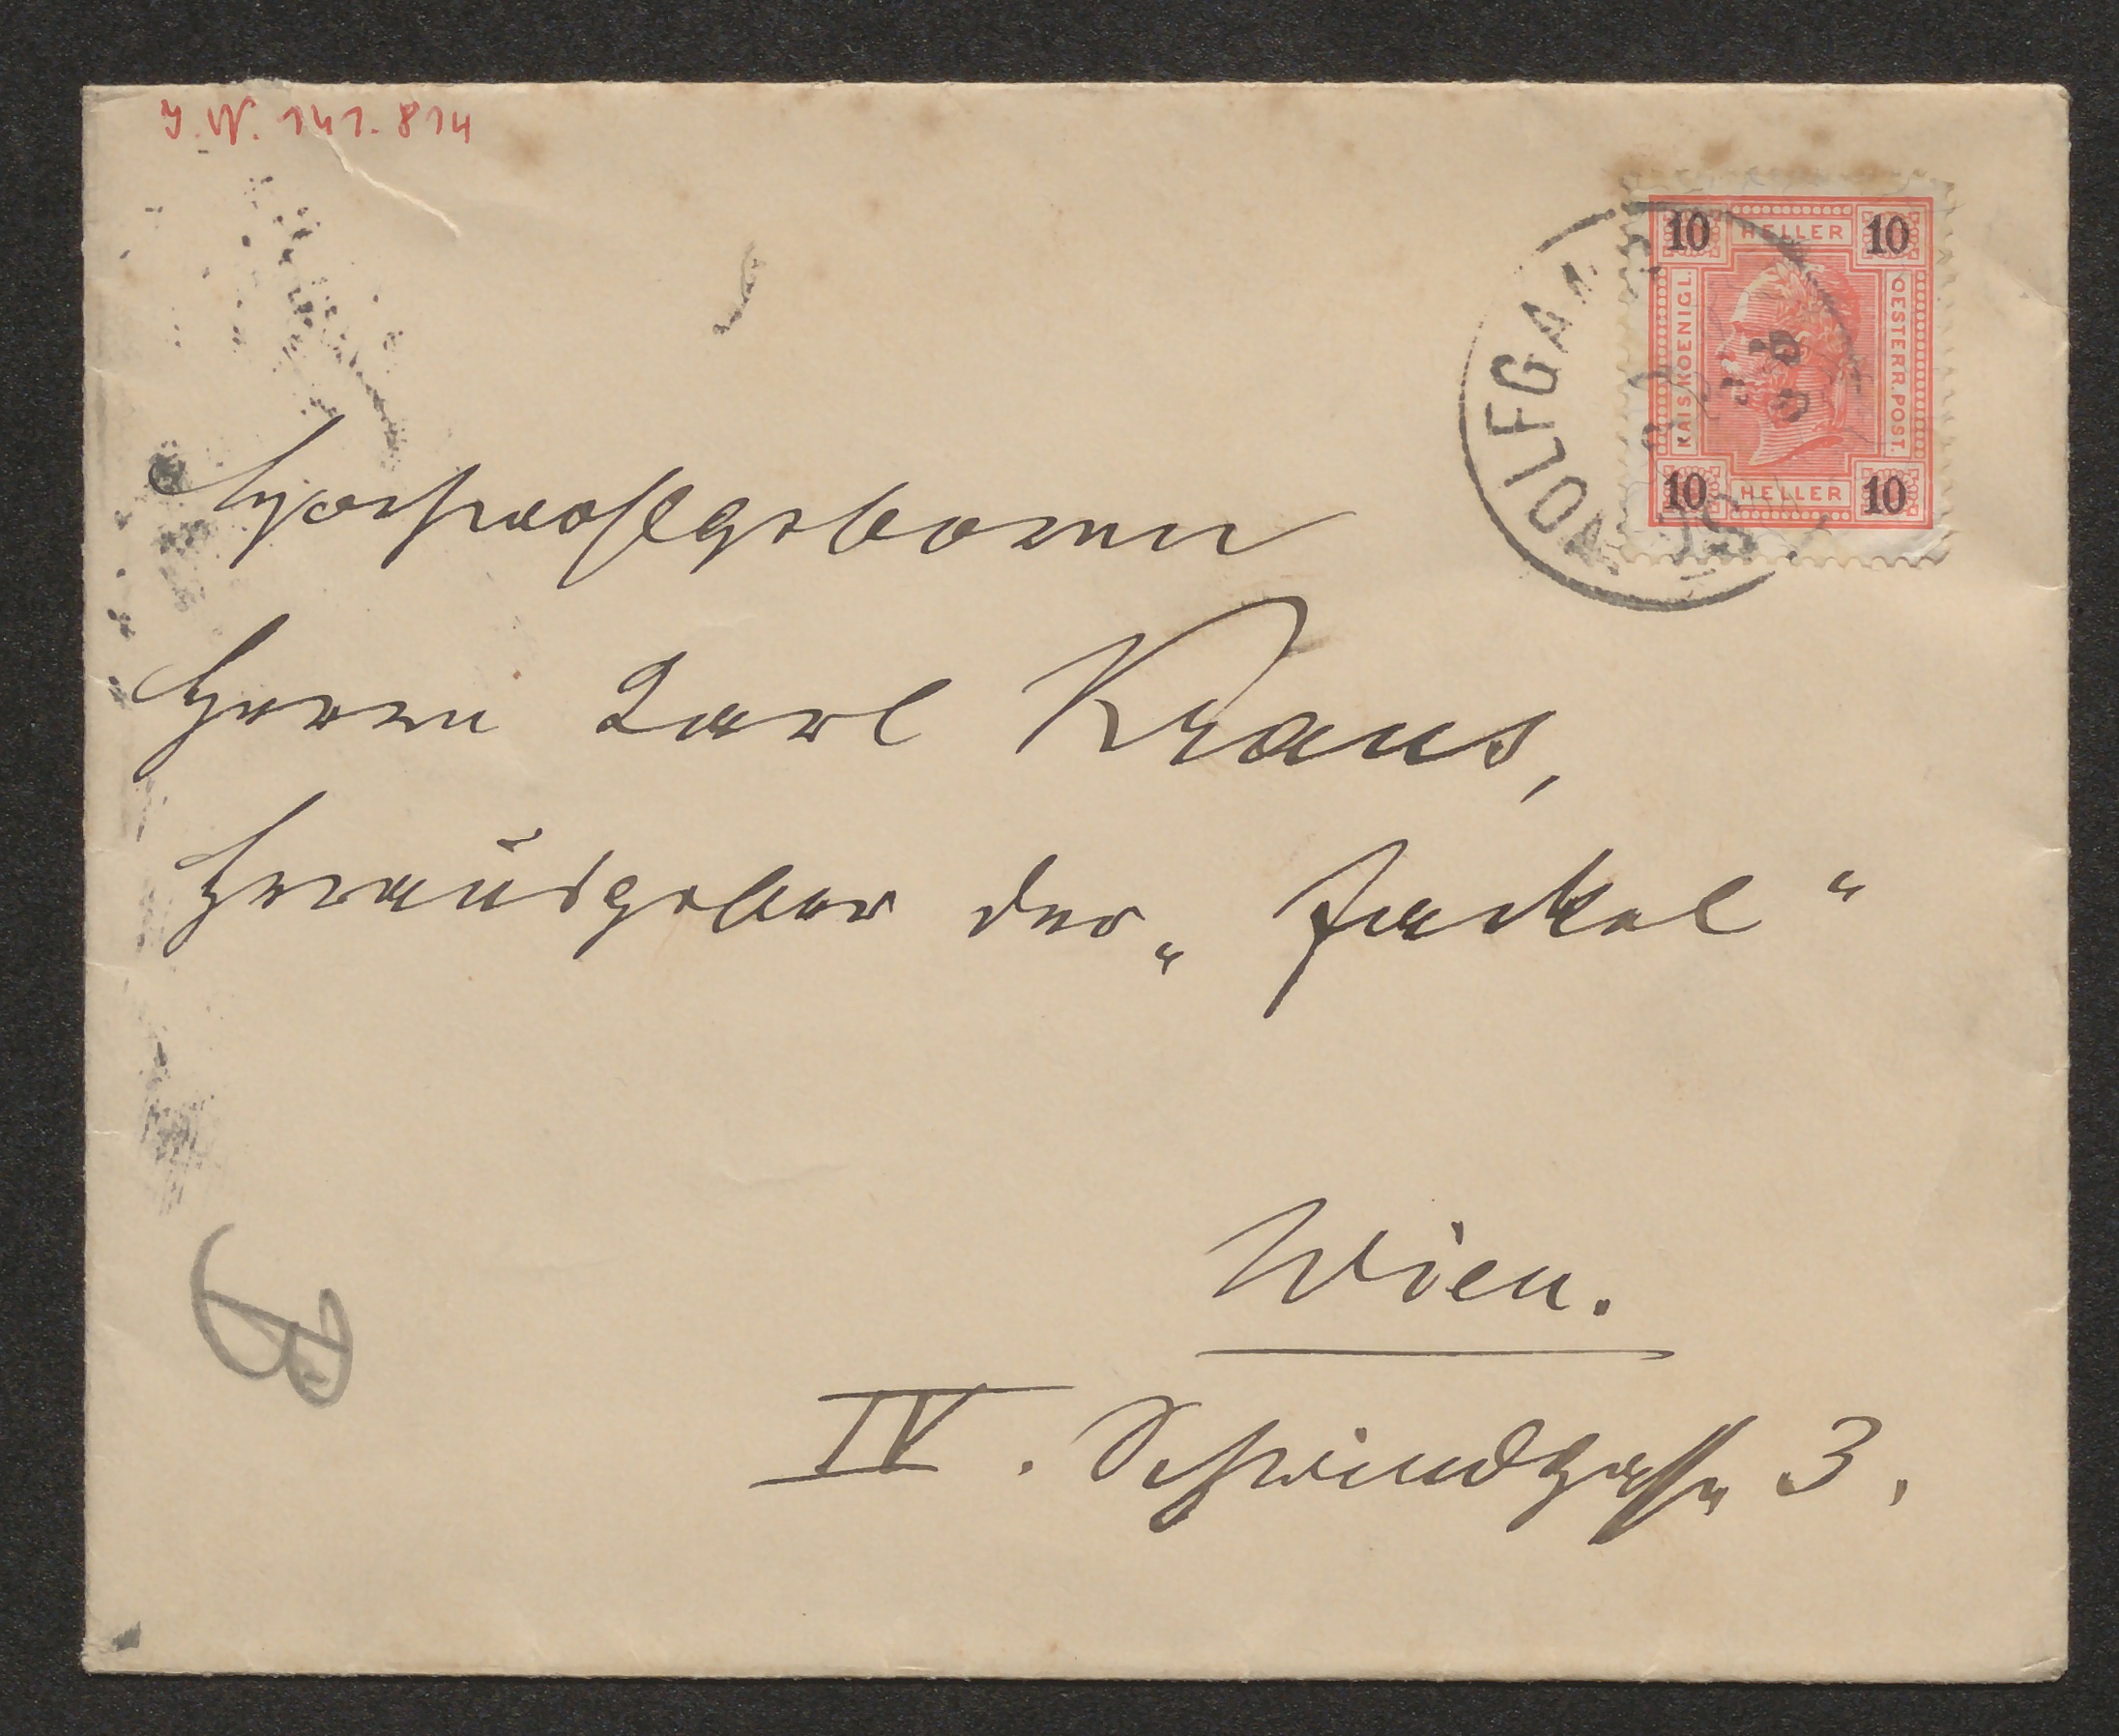 J.N. 141.814
10 HELLER 10
KAIS. KOENIGL.
OESTERR. POST.
10 HELLER 10
WOLFGA
Hochwohlgeboren
Herrn Karl Kraus,
Herausgeber der „Fackel“
Wien.
IV. Schwindgasse 3.
B